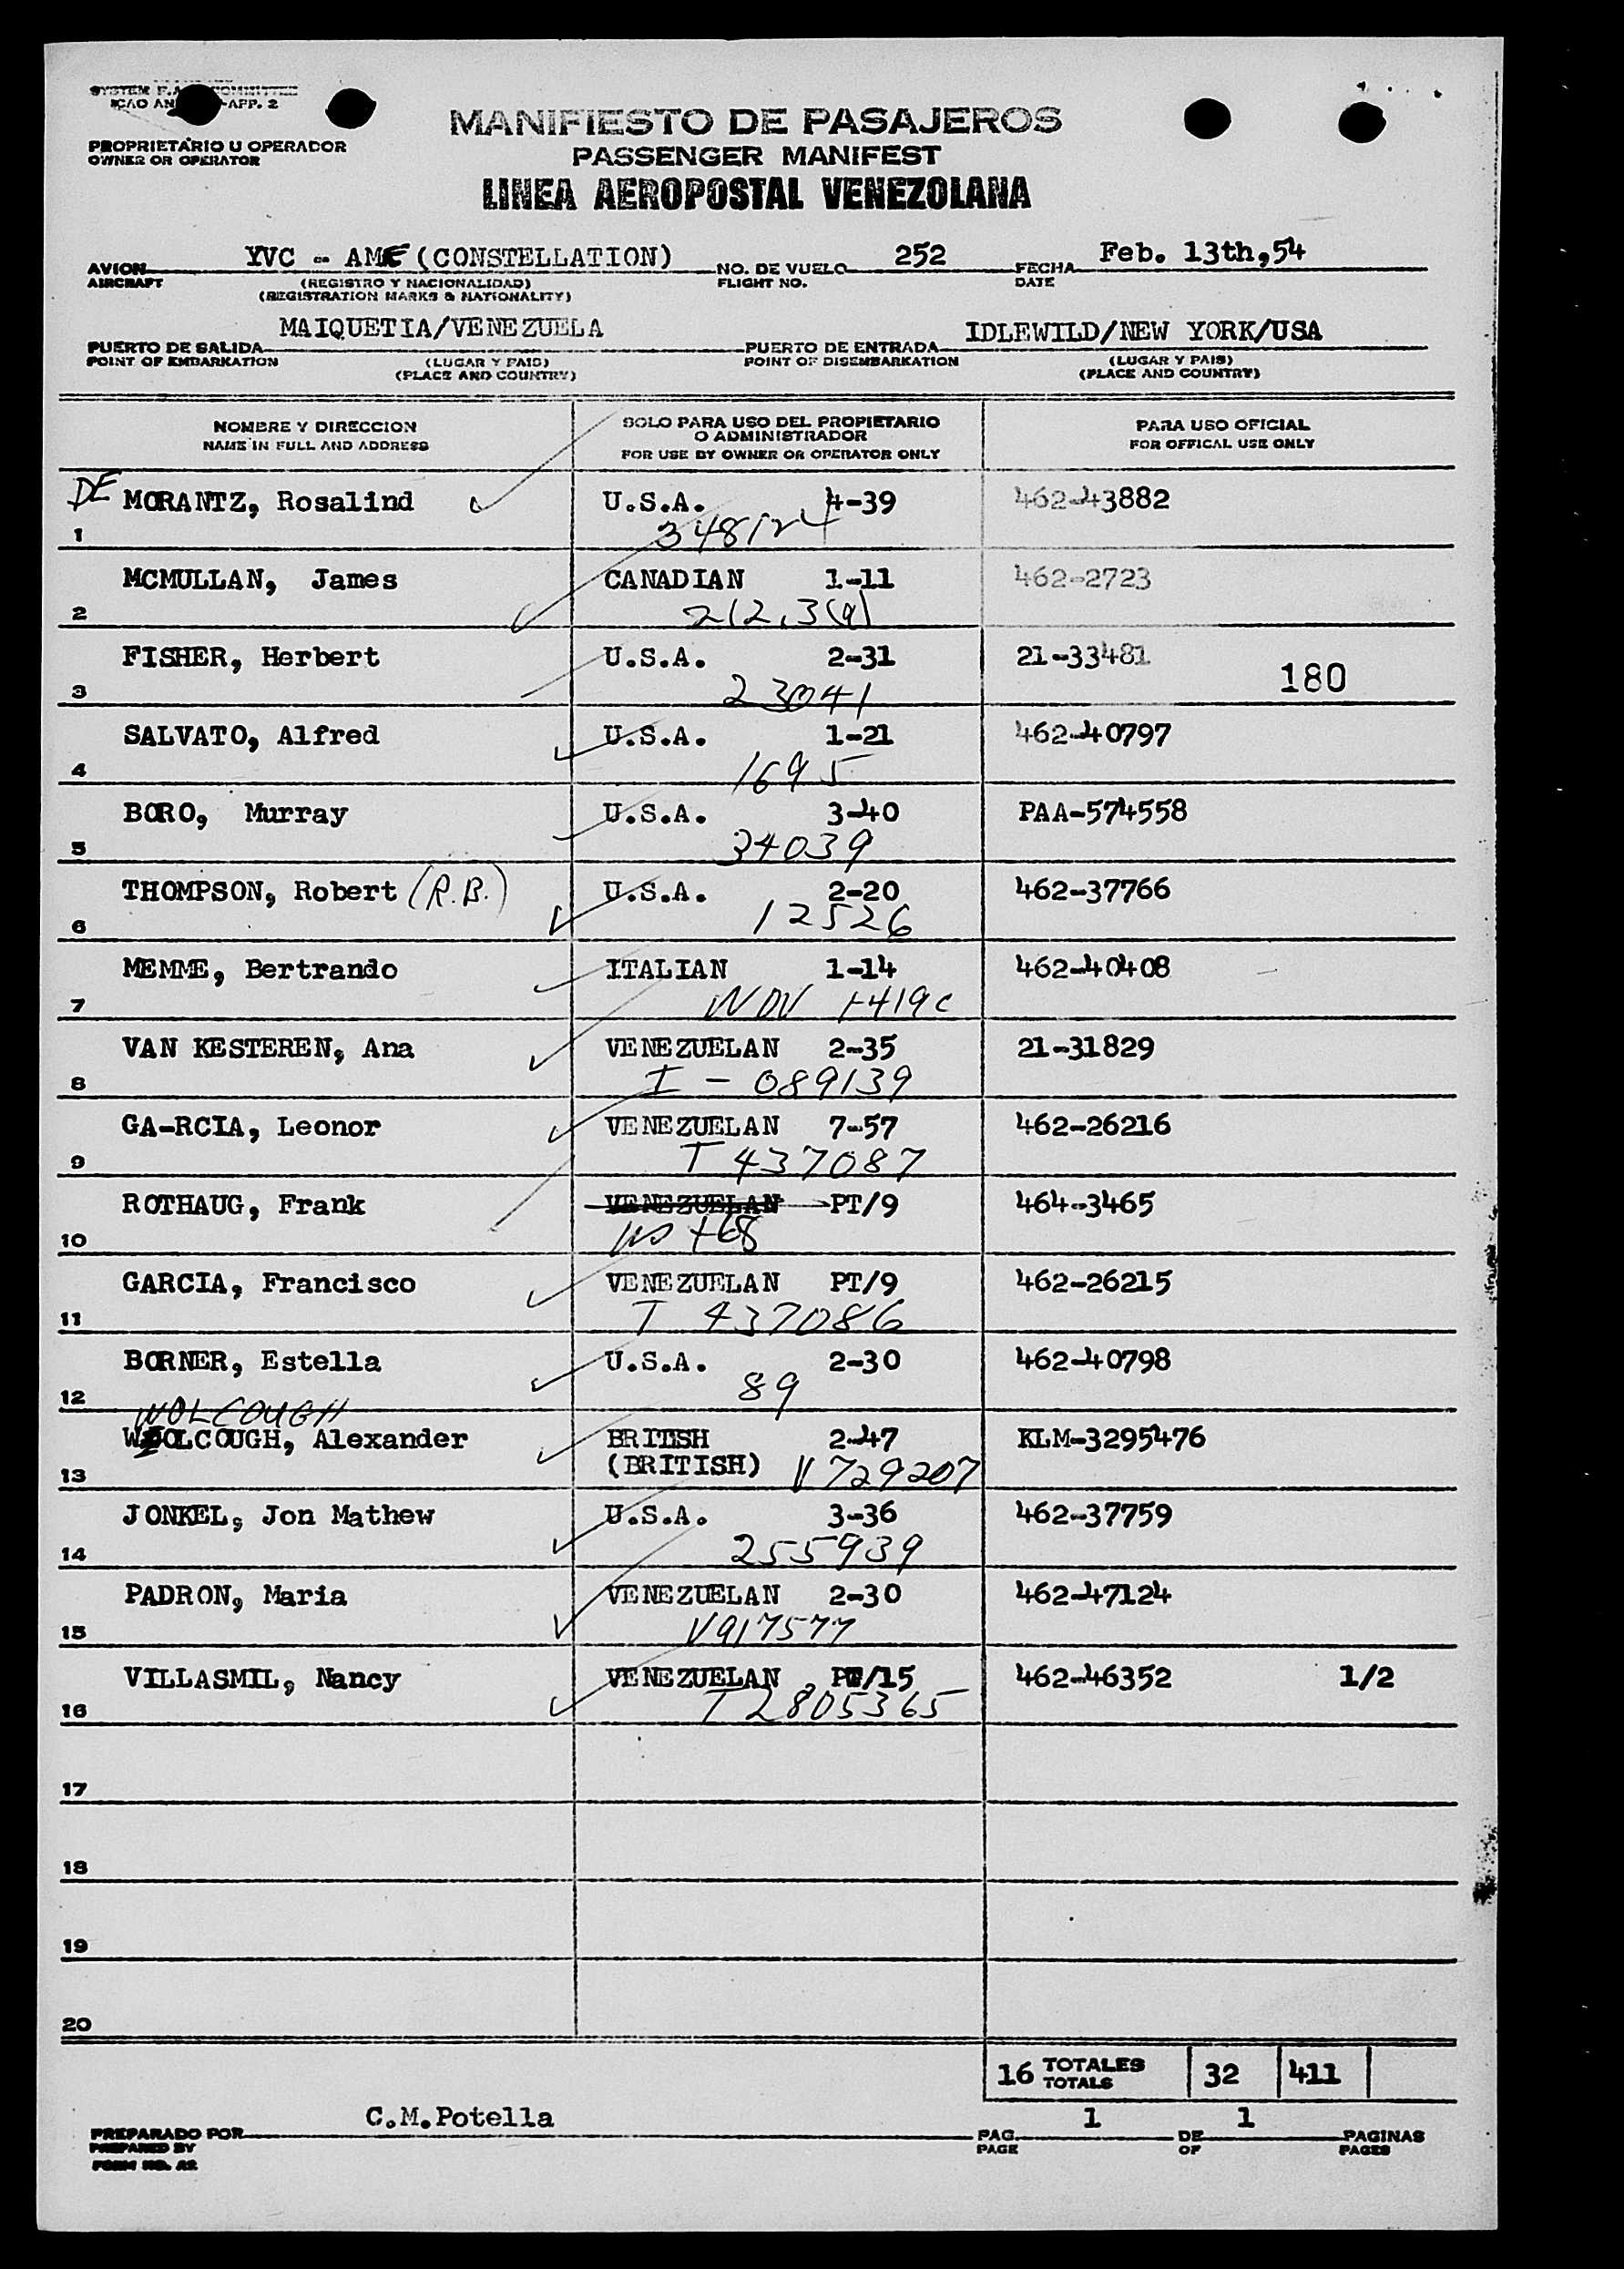 SYSTEM F.A. COMMITTEE
ICAO AN -APP. 2
MANIFIESTO DE PASAJEROS
PROPRIETARIO U OPERADOR
OWNER OR OPERATOR
PASSENGER MANIFEST
LINEA AEROPOSTAL VENEZOLANA
AVION YVC - AME (CONSTELLATION) NO. DE VUELO 252 FECHA Feb. 13th,54
AIRCRAFT (REGISTRO Y NACIONALIDAD) FLIGHT NO. DATE
(REGISTRATION MARKS & NATIONALITY)
PUERTO DE SALIDA MAIQUETIA/VENEZUELA PUERTO DE ENTRADA IDLEWILD/NEW YORK/USA
POINT OF EMBARKATION (LUGAR Y PAIS) POINT OF DISEMBARKATION (LUGAR Y PAIS)
(PLACE AND COUNTRY) (PLACE AND COUNTRY)
NOMBRE Y DIRECCION
NAME IN FULL AND ADDRESS
SOLO PARA USO DEL PROPIETARIO
O ADMINISTRADOR
FOR USE BY OWNER OR OPERATOR ONLY
PARA USO OFICIAL
FOR OFFICAL USE ONLY
DE MORANTZ, Rosalind U.S.A. 4-39 462-43882
1 348124
MCMULLAN, James CANADIAN 1-11 462-2723
2 212.3(a)
FISHER, Herbert U.S.A. 2-31 21-33481
3 23041 180
SALVATO, Alfred U.S.A. 1-21 462-40797
4 1695
BORO, Murray U.S.A. 3-40 PAA-574558
5 34039
THOMPSON, Robert (R.B.) U.S.A. 2-20 462-37766
6 12526
MEMME, Bertrando ITALIAN 1-14 462-40408
7
VAN KESTEREN, Ana VENEZUELAN 2-35 21-31829
8 I - 089139
GA-RCIA, Leonor VENEZUELAN 7-57 462-26216
9 T 437087
ROTHAUG, Frank VENEZUELAN PT/9 464-3465
10
GARCIA, Francisco VENEZUELAN PT/9 462-26215
11 T 437086
BORNER, Estella U.S.A. 2-30 462-40798
12 89
WOLCOUGH
WOOLCOUGH, Alexander BRITISH 2-47 KLM-3295476
13 (BRITISH) V 729207
JONKEL, Jon Mathew U.S.A. 3-36 462-37759
14 255939
PADRON, Maria VENEZUELAN 2-30 462-47124
15 V917577
VILLASMIL, Nancy VENEZUELAN PT/15 462-46352 1/2
16 T 2805365
17
18
19
20
16 TOTALES 32 411
TOTALS
PREPARADO POR C.M.Potella PAG. 1 DE 1 PAGINAS
PREPARED BY PAGE OF PAGES
FORM NO. A2